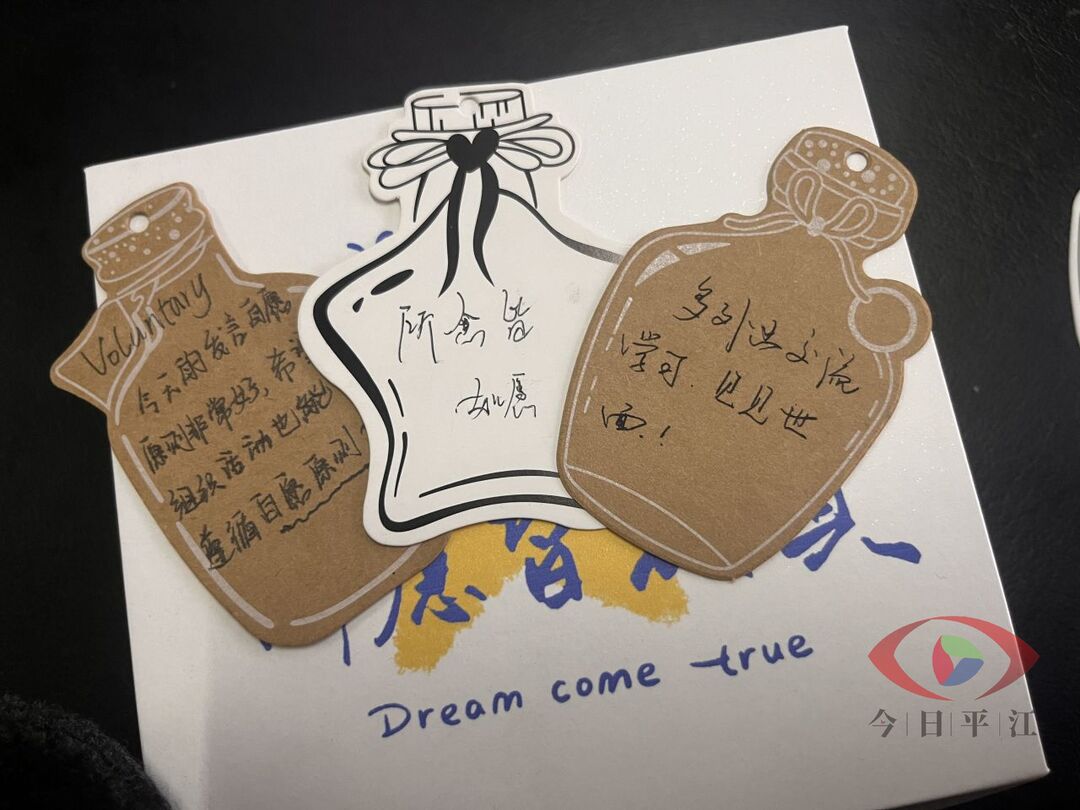 Voluntary
今天的发言自愿
原则非常好，希
组织活动也能
遵循自愿原则
所念皆
如愿
多到县交流
学习．见见世
面．！
愿皆
Dream come true
今日平江